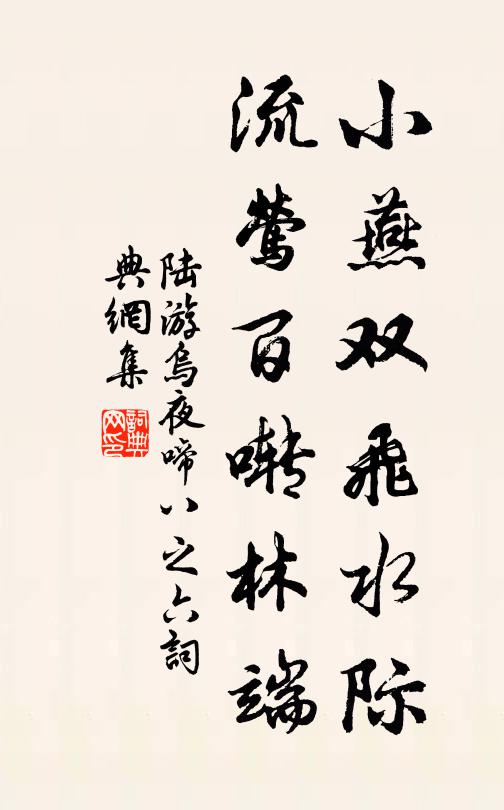 小燕双飛水际
流莺百啭林端
陆游烏夜啼八之六詞
典網集
詞典
网印